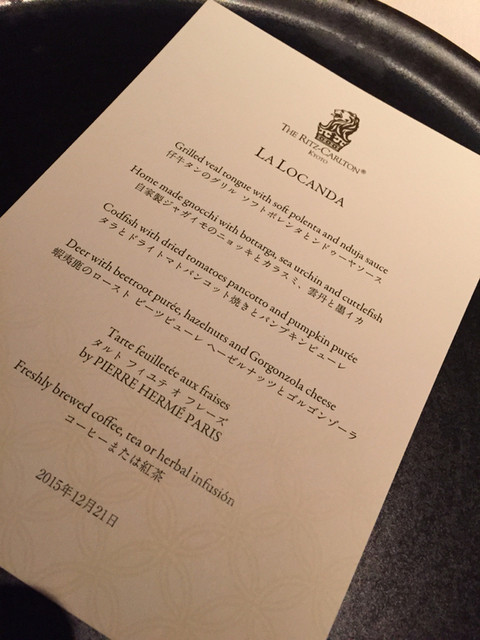 THE RITZ-CARLTON®
KYOTO
LA LOCANDA
Grilled veal tongue with soft polenta and nduja sauce
仔牛タンのグリル ソフトポレンタとンドゥーヤソース
Home made gnocchi with bottarga, sea urchin and cuttlefish
自家製ジャガイモのニョッキとカラスミ、雲丹と墨イカ
Codfish with dried tomatoes pancotto and pumpkin purée
タラとドライトマトパンコット焼きとパンプキンピューレ
Deer with beetroot purée, hazelnuts and Gorgonzola cheese
蝦夷鹿のロースト ビーツピューレ ヘーゼルナッツとゴルゴンゾーラ
Tarte feuilletée aux fraises
タルト フイユテ オ フレーズ
by PIERRE HERMÉ PARIS
Freshly brewed coffee, tea or herbal infusión
コーヒーまたは紅茶
2015年12月21日